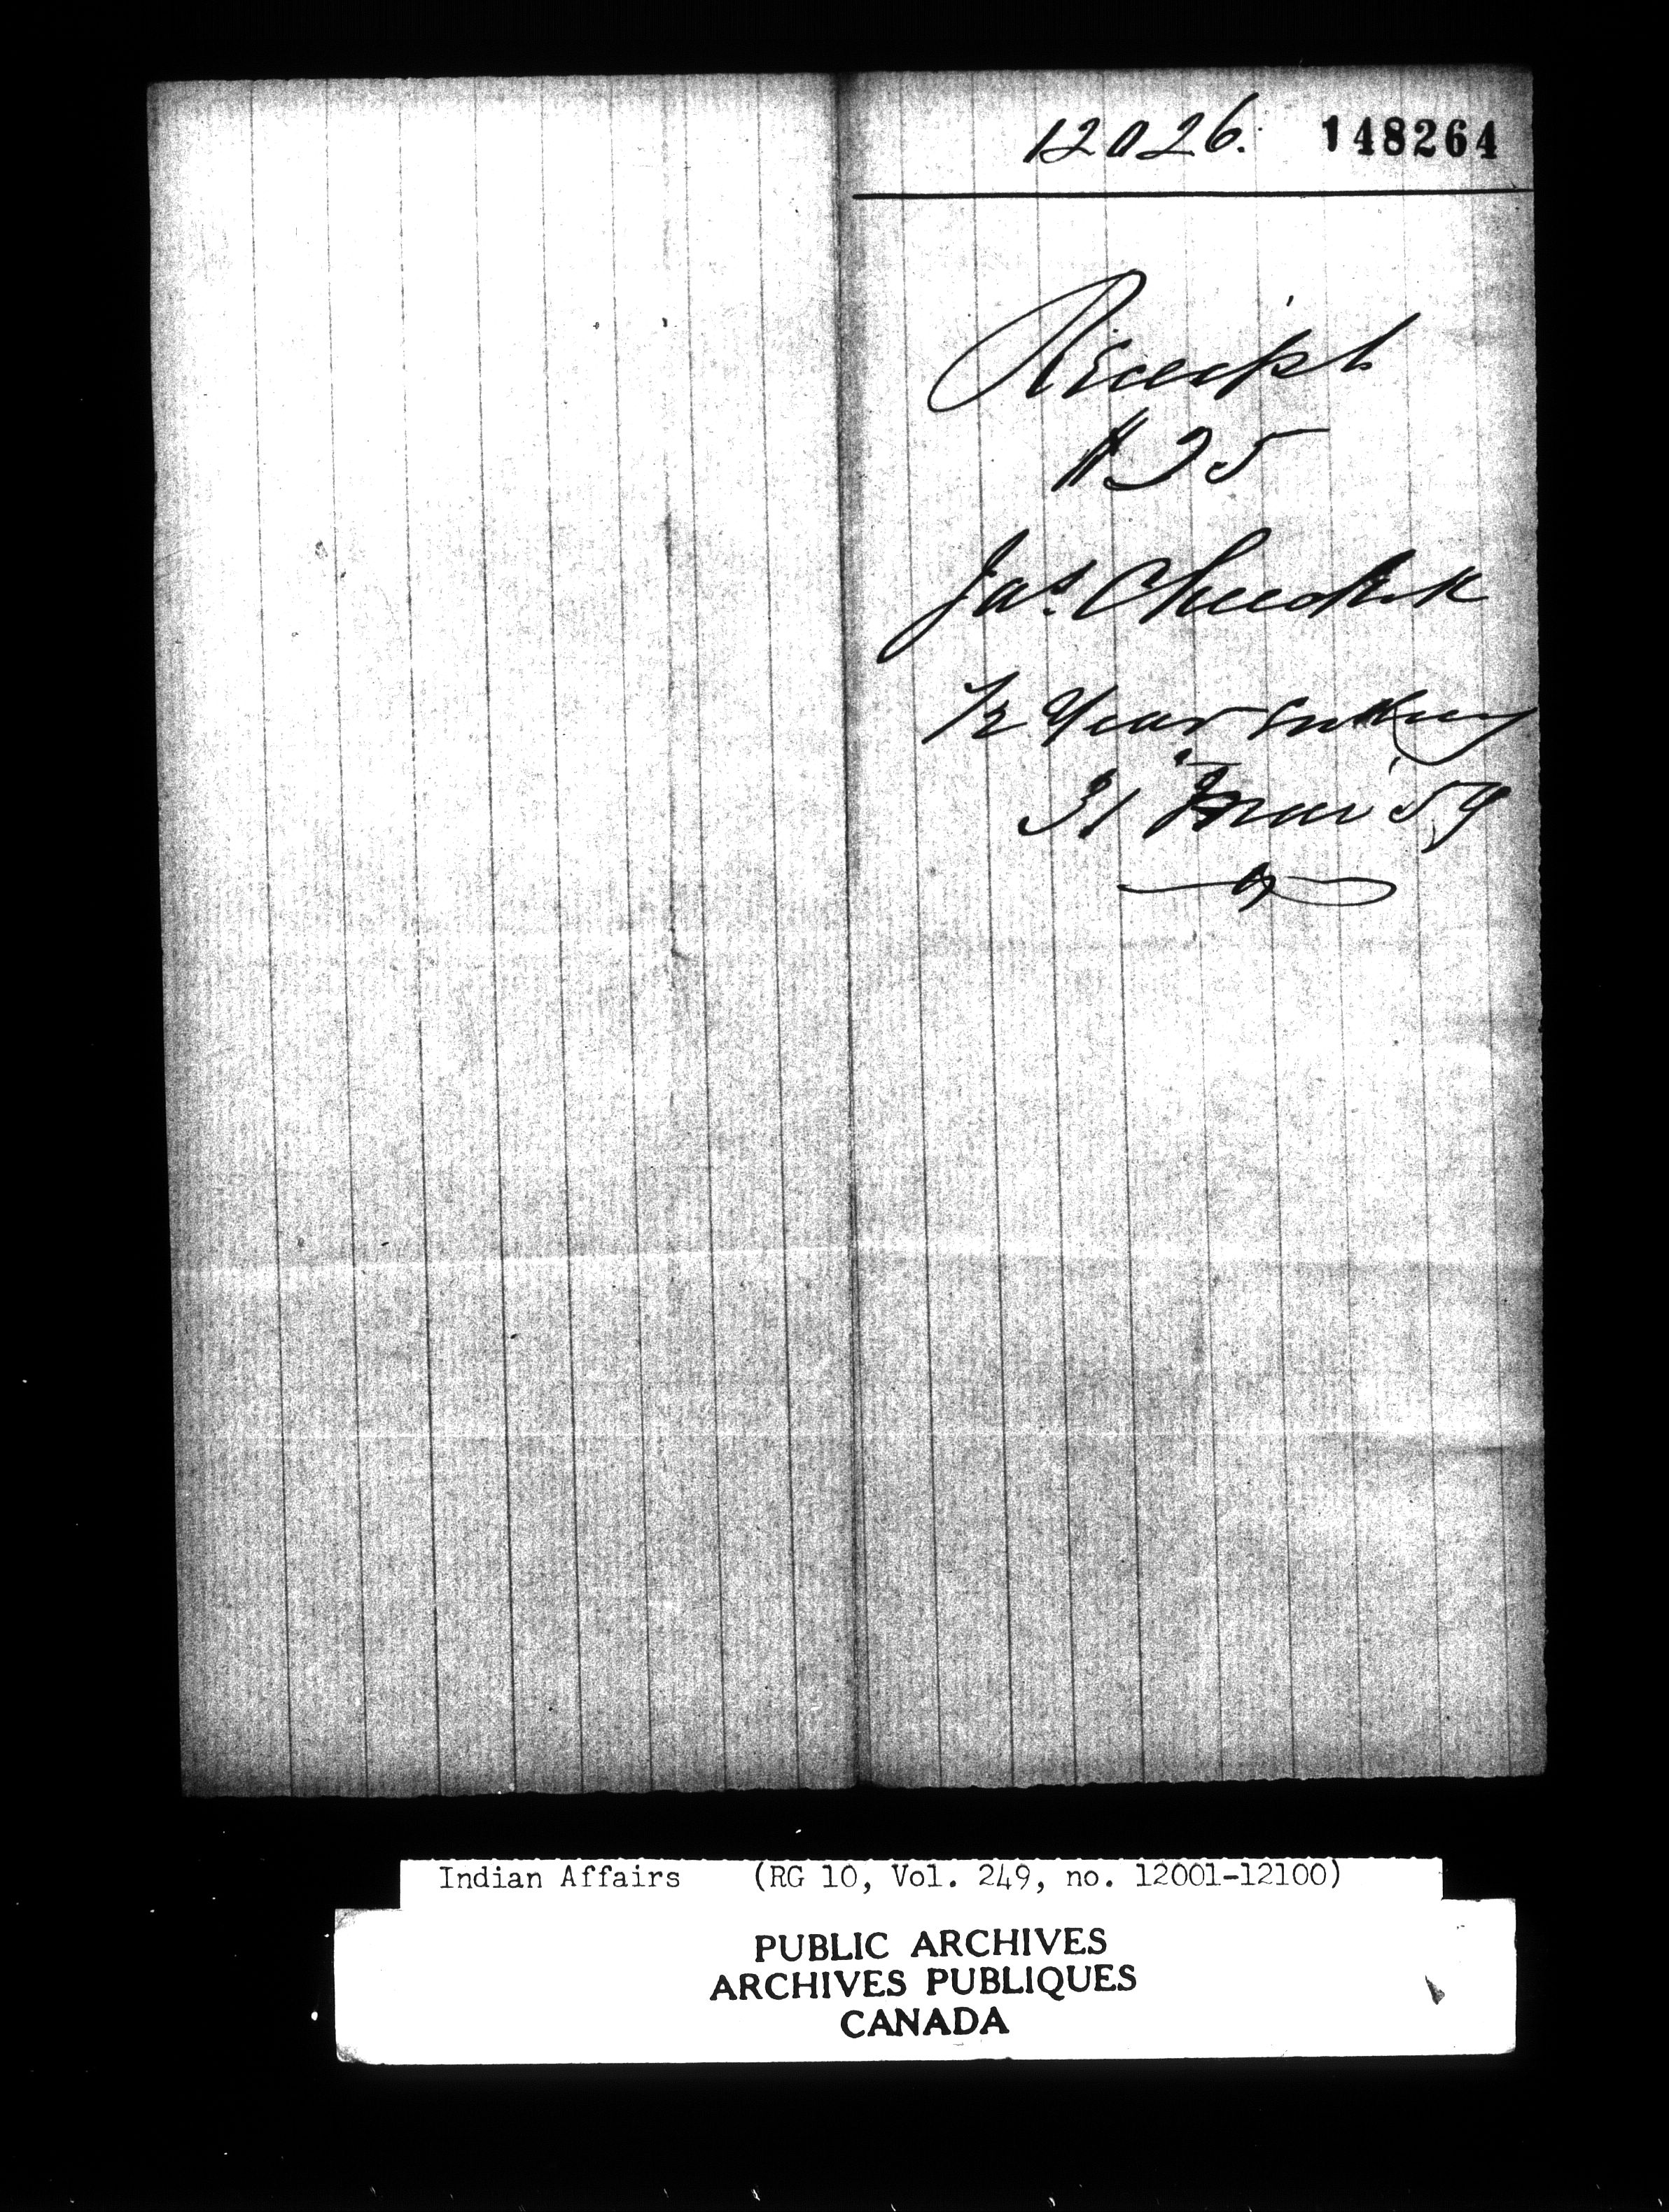 12026. 148264
Receipt
$25
Jas.
1/2 Year ending
31 Mar '59
Indian Affairs (RG 10, Vol. 249, no. 12001-12100)
PUBLIC ARCHIVES
ARCHIVES PUBLIQUES
CANADA